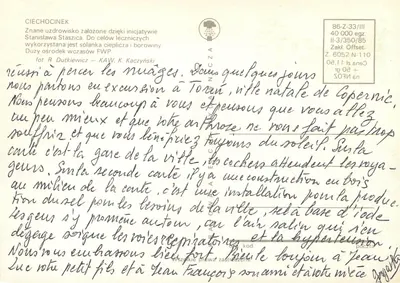 CIECHOCINEK
Znane uzdrowisko założone dzięki inicjatywie
Stanisława Staszica. Do celów leczniczych
wykorzystana jest solanka ciepłicza i borowiny
Duży ośrodek wczasów FWP
fot. R. Dutkiewicz — KAW, K. Kaczyński
86-Z-33/III
40 000 egz.
II-3/350/85
Zakł. Offset.
réussi à percer les nuages. Dans quelques jours
nous partons en excursion à Toruń, ville natale de Copernic.
Nous pensons beaucoup à vous et pensons que vous allez
un peu mieux et que votre arthrose ne vous fait pas trop
souffrir et que vous bénéficiez toujours du soleil. Sur la
carte c'est la gare de la ville, les cochers attendent les voya-
geurs. Sur la seconde carte il y a une construction en bois
au milieu de la carte, c'est une installation pour la produc-
tion du sel pour les besoins de la ville, sel à base d'iode
Les gens s'y promène autour, car l'air salin qui s'en
dégage soigne les voies respiratoires et la hypertension.
Nous vous embrassons bien fort. Bientôt toujours à Jean
Luc votre petit fils et à Jean François son ami et à votre nièce